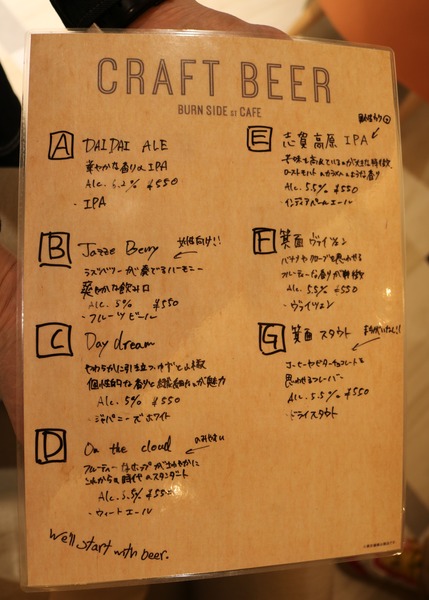 CRAFT BEER
BURN SIDE ST CAFE
A DAIDAI ALE
華やかな香りのIPA
Alc. 6.2% ¥550
・IPA
B Jazz Berry 女性向け!!
ラズベリーが奏でるハーモニー
爽やかな飲み口
Alc. 5% ¥550
・フルーツビール
C Day dream
やわらかに引き立つゆずと
個性的な香りと繊細な が魅力
Alc. 5% ¥550
・ジャパニーズホワイト
D On the cloud のみやすい
フルーティーなホップがさわやかに
これからの時代のスタンダード
Alc. 5.5% ¥550
・ウィートエール
We'll start with beer.
E 志賀高原 IPA
苦味も
ローストモルトのカラメルのような香り
Alc. 5.5% ¥550
・インディアペールエール
F 箕面 ヴァイツェン
バナナやクローブを思わせる
フルーティーな香りが特徴
Alc. 5.5% ¥550
・ヴァイツェン
G 箕面 スタウト
コーヒーやビターチョコレートを
思わせるフレーバー
Alc. 5.5% ¥550
・ドライスタウト